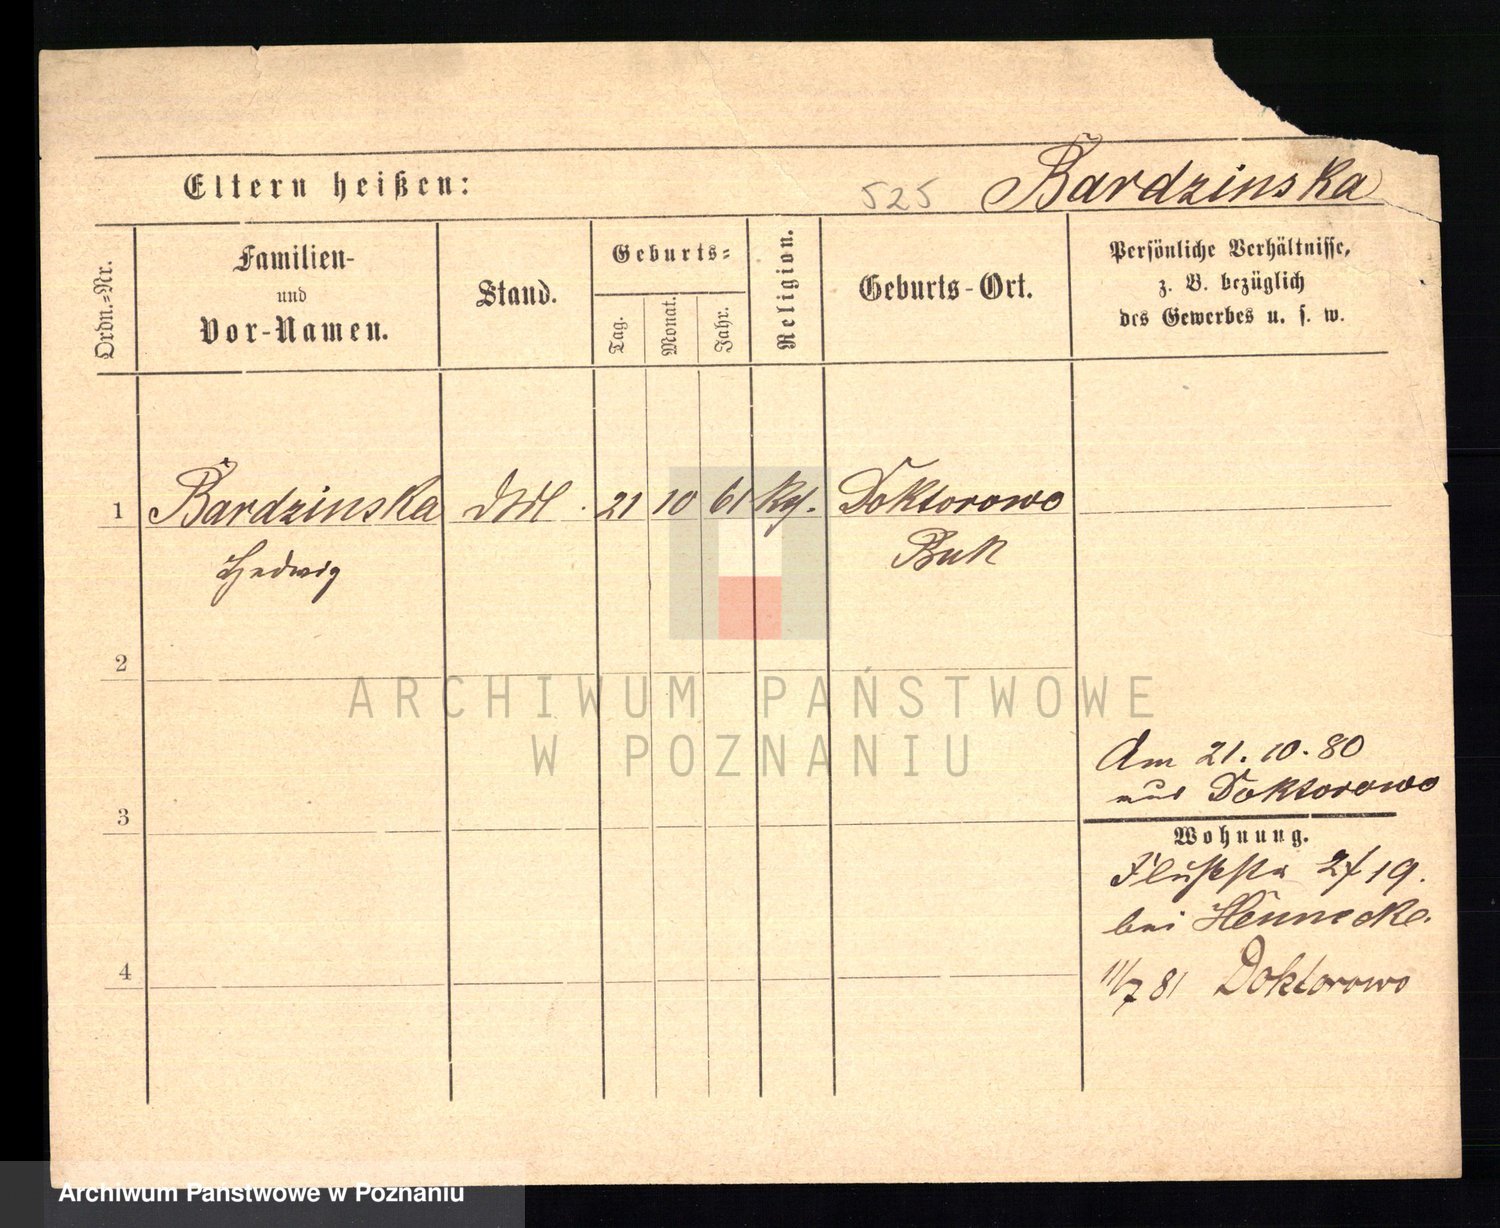 Eltern heißen:
525 Bardzinska
Ordn.=Nr.
Familien-
und
Vor-Namen.
Stand.
Geburts=
Tag.
Monat.
Jahr.
Religion.
Geburts-Ort.
Persönliche Verhältnisse,
z. B. bezüglich
des Gewerbes u. s. w.
1 Bardzinska 21 10 61 Doktorowo
Hedwig Buk
2
ARCHIWUM PAŃSTWOWE
W POZNANIU
Am 21. 10. 80
aus Doktorowo
3
Wohnung.
19.
bei Hennecke.
4
11/7 81 Doktorowo
Archiwum Państwowe w Poznaniu